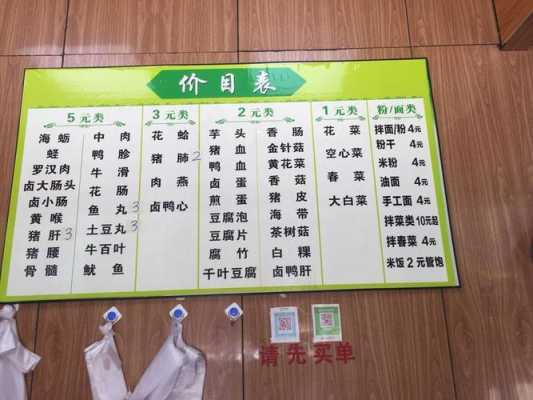 价目表
5元类
海蛎
蛏
罗汉肉
卤大肠头
卤小肠
黄喉
猪肝 3
猪腰
骨髓
中肉
鸭胗
牛滑
花肠
鱼丸 3
土豆丸 3
牛百叶
鱿鱼
3元类
花蛤
猪肺 2
肉燕
卤鸭心
2元类
芋头
猪血
鸭血
卤蛋
煎蛋
豆腐泡
豆腐片
腐竹
千叶豆腐
香肠
金针菇
黄花菜
香菇
猪皮
海带
茶树菇
白粿
卤鸭肝
1元类
花菜
空心菜
春菜
大白菜
粉/面类
拌面/粉 4元
粉干 4元
米粉 4元
油面 4元
手工面 4元
拌菜类 10元起
拌春菜 4元
米饭 2 元管饱
请先买单